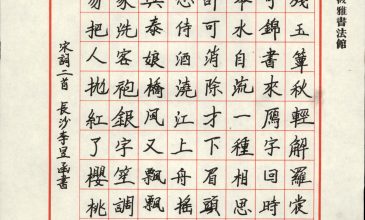 雅書法館
玉簟秋輕解羅裳
錦書來鴈字回時
水自流一種相思
可消除才下眉頭
待酒澆江上舟搖
泰娘橋風又飄飄
家洗客袍銀字笙調
易把人拋紅了櫻桃
宋詞二首 長沙李昱函書